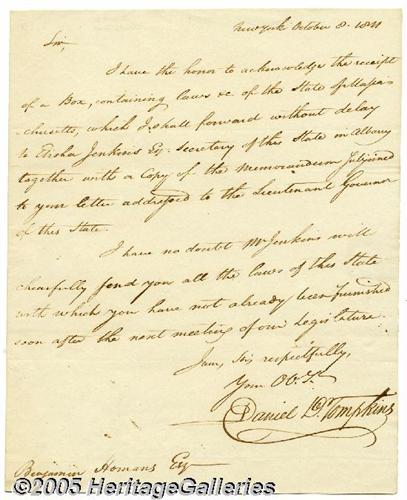 New york October 8. 1811
Sir,
I have the honor to acknowledge the receipt
of a Box, containing laws &c of the State of Massa-
chusetts, which I shall forward without delay
to Elisha Jenkins Esq. Secretary of this State in Albany
together with a Copy of the Memorandum subjoined
to your letter addressed to the Lieutenant Governor
of this State.
I have no doubt Mr Jenkins will
chearfully send you all the laws of this State
with which you have not already been furnished
soon after the next meeting of our Legislature.
I am, Sir, respectfully,
Your Obt. St
Daniel D. Tompkins
Benjamin Homans Esq
©2005 HeritageGalleries